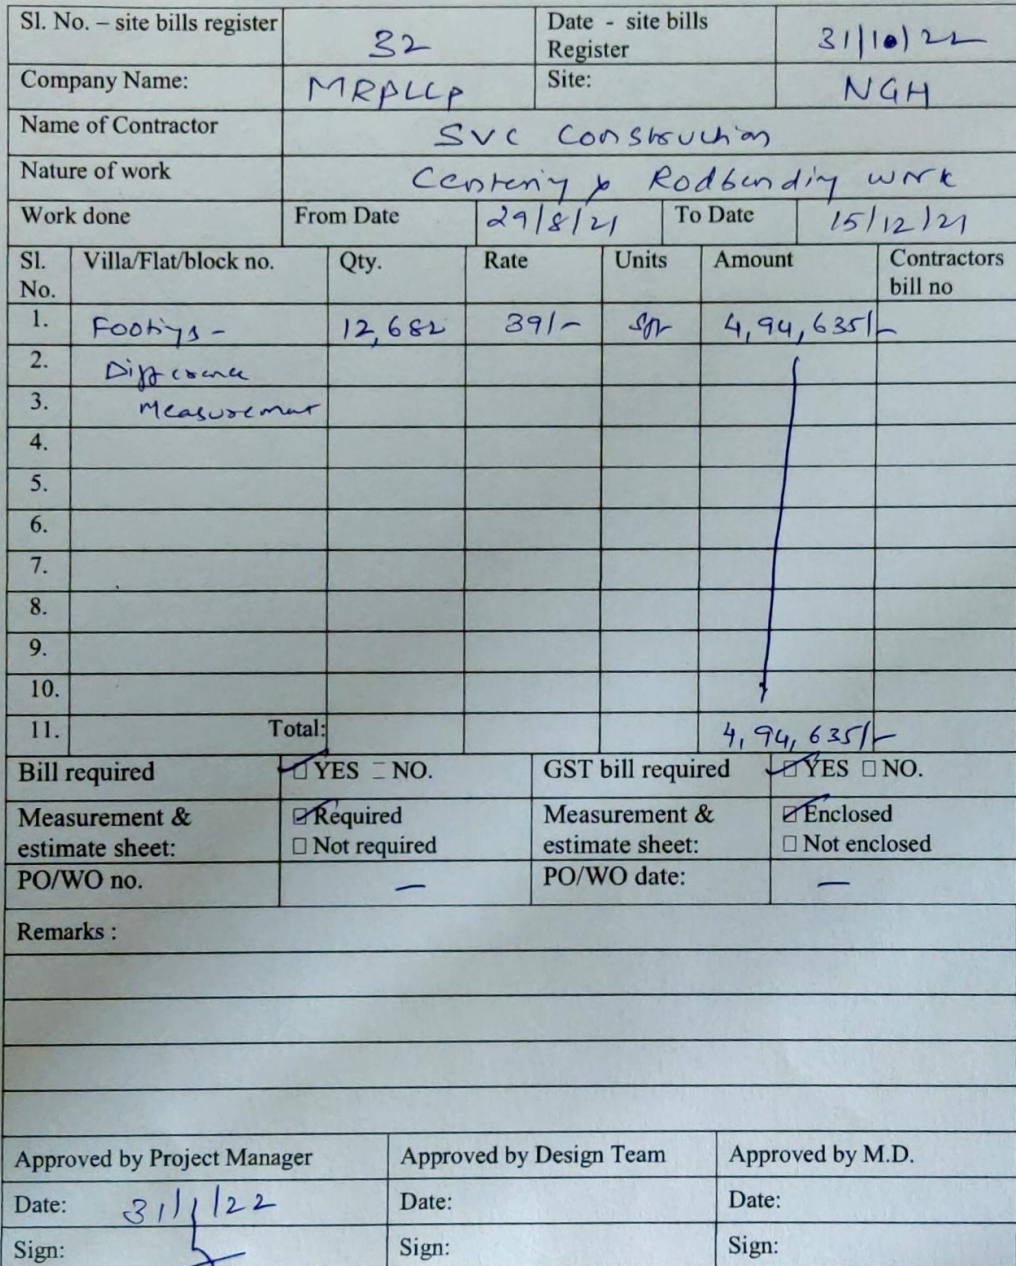 Sl. No. – site bills register 32 Date - site bills Register 31/10/22
Company Name: MRPLLP Site: NGH
Name of Contractor SVC Construction
Nature of work Centering & Rodbending work
Work done From Date 29/8/21 To Date 15/12/21
Sl. No. Villa/Flat/block no. Qty. Rate Units Amount Contractors bill no
1. Footings - 12,682 39/- sft 4,94,635/-
2. Difference
3. Measurement
4.
5.
6.
7.
8.
9.
10.
11. Total: 4,94,635/-
Bill required ☑ YES ☐ NO. GST bill required ☑ YES ☐ NO.
Measurement & estimate sheet: ☑ Required ☐ Not required Measurement & estimate sheet: ☑ Enclosed ☐ Not enclosed
PO/WO no. — PO/WO date: —
Remarks :
Approved by Project Manager Approved by Design Team Approved by M.D.
Date: 31/1/22 Date: Date:
Sign: Sign: Sign: